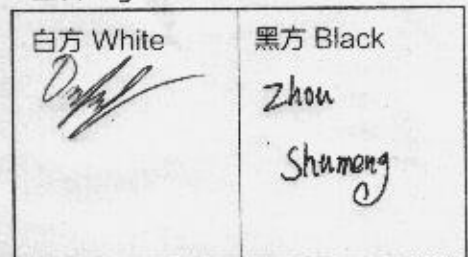 白方 White
黑方 Black
Zhou
Shumeng